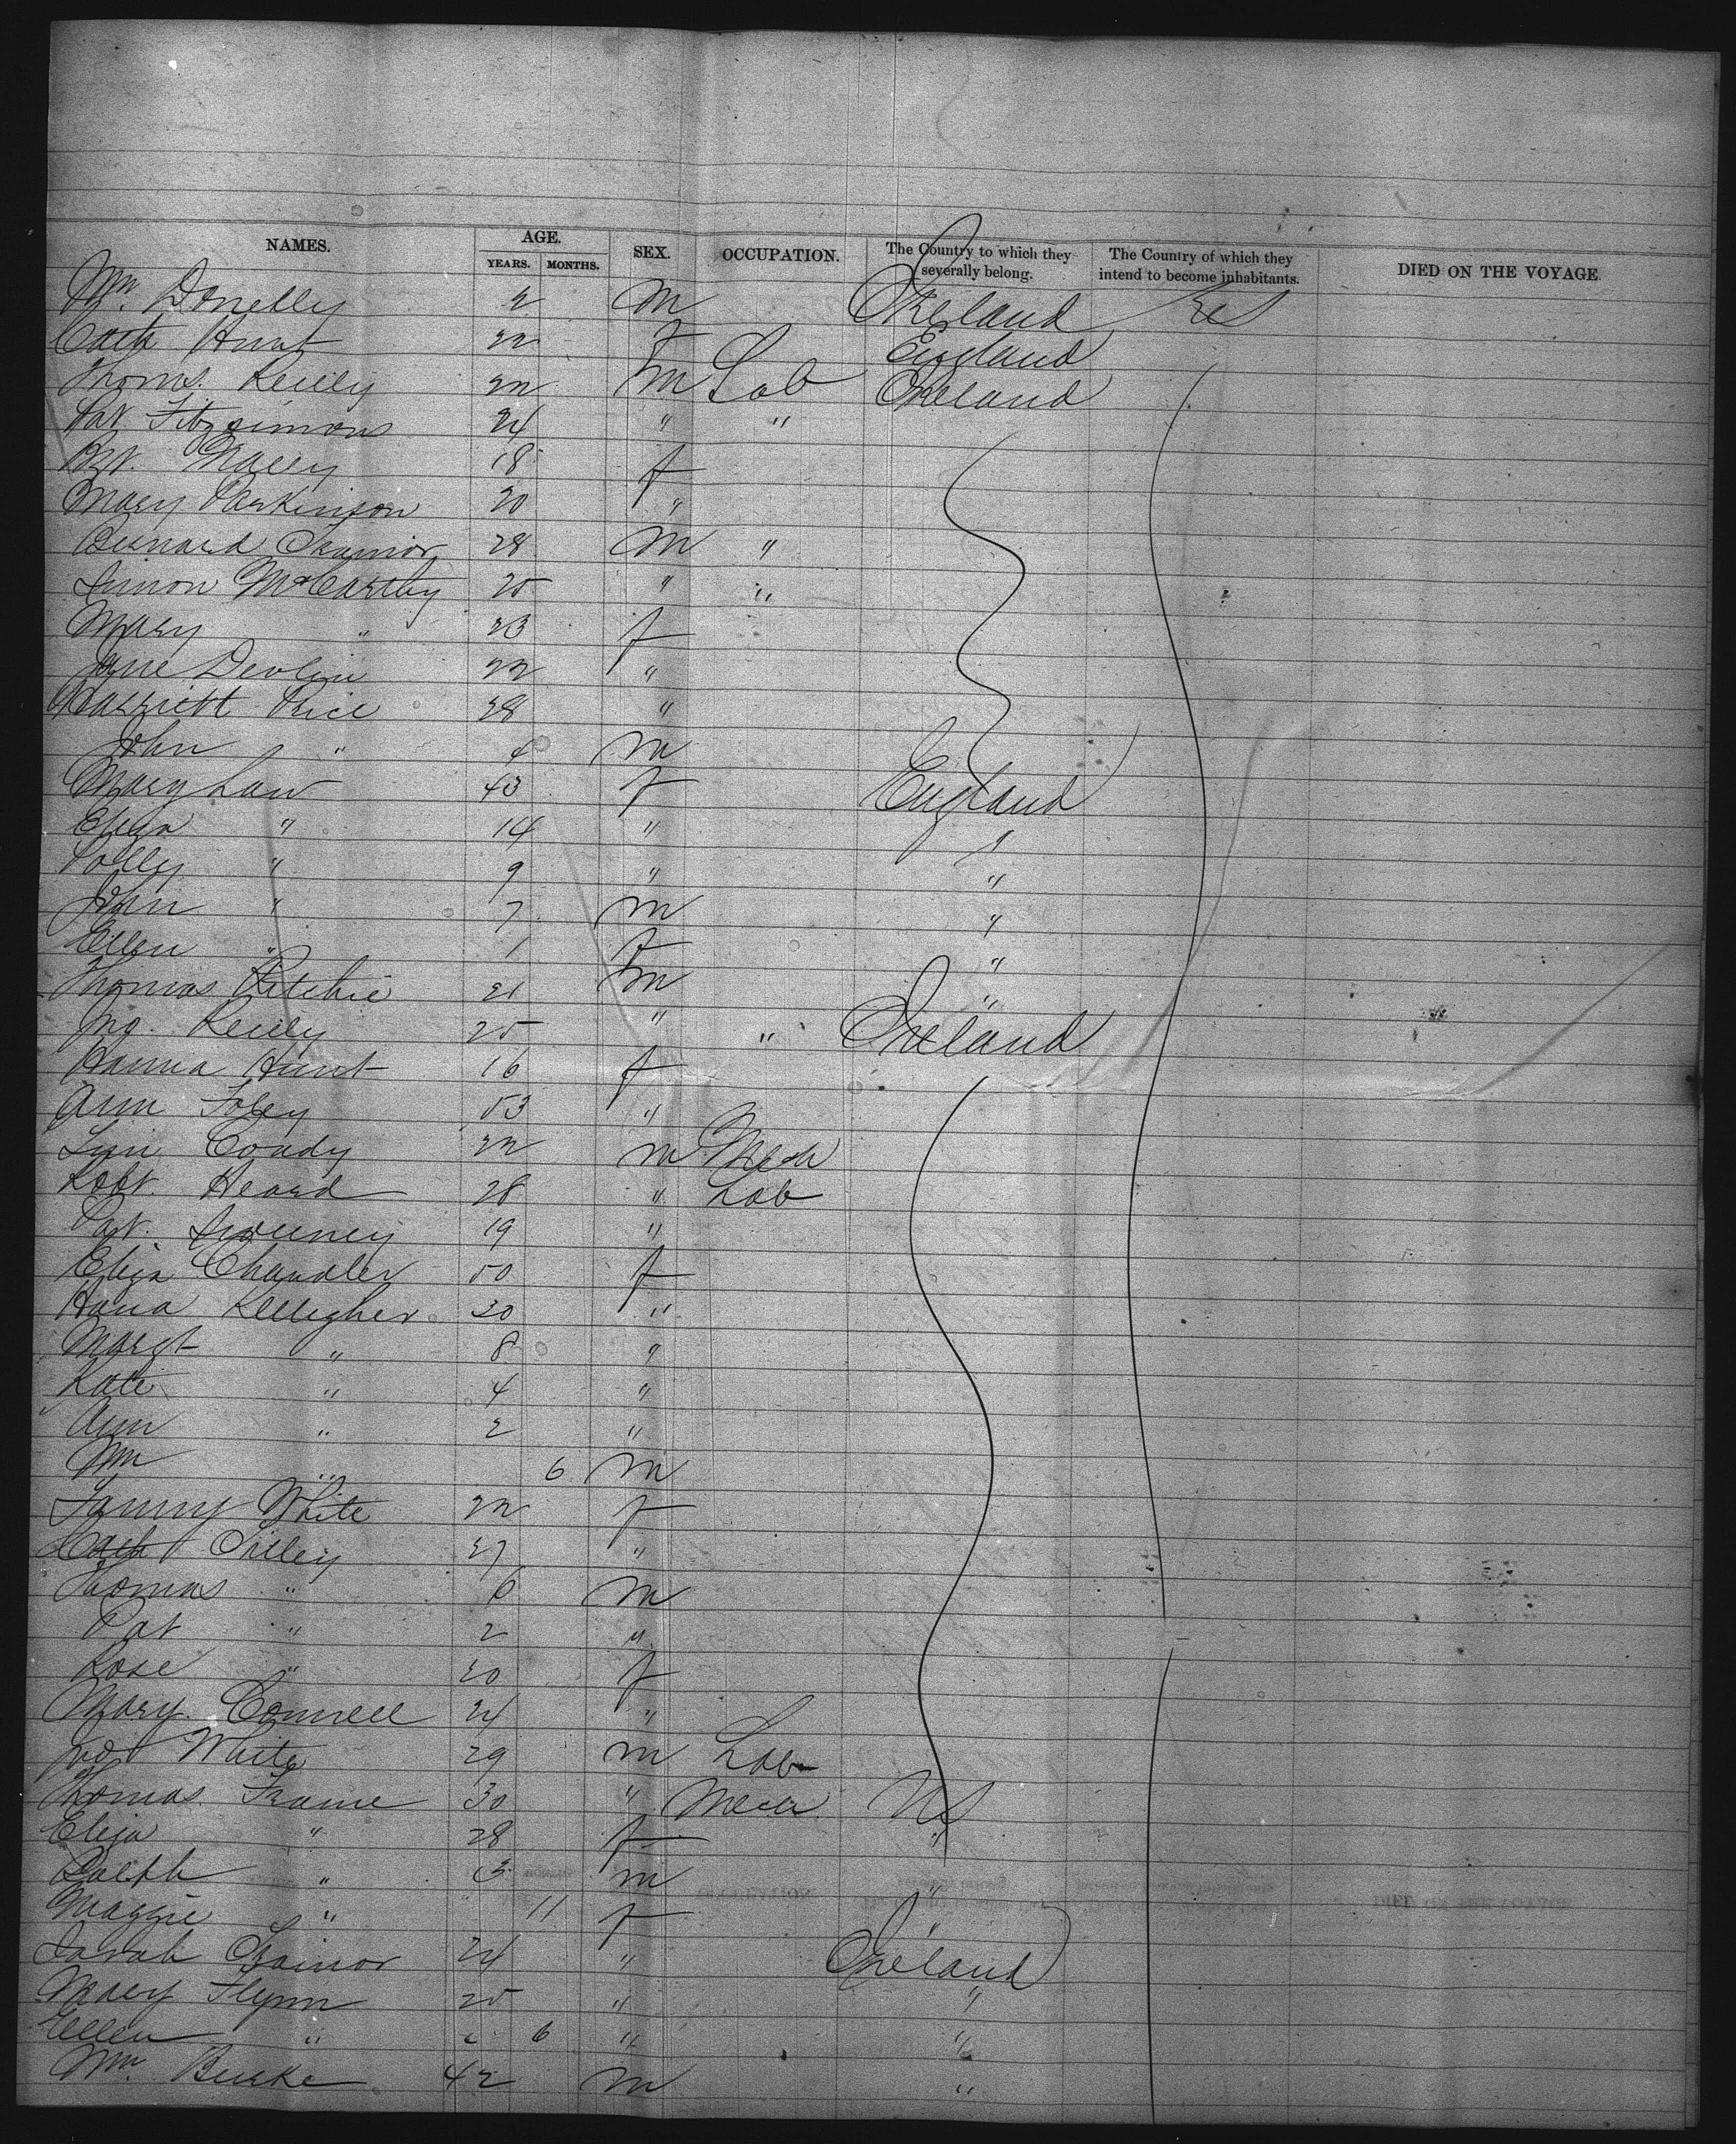 NAMES. AGE. YEARS. MONTHS. SEX. OCCUPATION. The Country to which they severally belong. The Country of which they intend to become inhabitants. DIED ON THE VOYAGE.
Wm. Donelly 2 M Ireland US
Cath Hunt 22 f England
Thoms. Reilly 22 M Lab Ireland
Pat. Fitzsimons 24 " "
Bgt. 18 f
Mary Parkinson 20 "
Bernard Trainor 28 M "
Simon McCarthy 25 " "
Mary " 23 f
Jane Devlin 22 "
Harriett Price 28 "
John " 4 M
Mary Law 43 f England
Eliza " 14 " "
Polly " 9 " "
John " 7 M "
Ellen " 1 f "
Thomas Ritchie 21 M "
Jno. Reilly 25 " " Ireland
Hanna Hunt 16 f
Ann Foley 53 "
Coady 22 M Mech
Robt. Heard 28 " Lab
Pat. Sweeney 19 "
Eliza Chandler 50 f
Hana Kelligher 30 "
Margt " 8 "
Kate " 4 "
Ann " 2 "
Wm " 6 M
Fanny White 22 f
Cath Tilley 27 "
Thomas " 6 M
Pat " 2 "
Rose " 20 f
Mary Connell 24 "
Jno White 29 M Lab
Thomas Frame 30 " Mech US
Eliza " 28 f "
Ralph " 3 M "
Maggie " " 11 f "
Sarah Trainor 24 " Ireland
Mary Flynn 25 " "
Ellen " 6 " "
Wm. Burke 42 M "